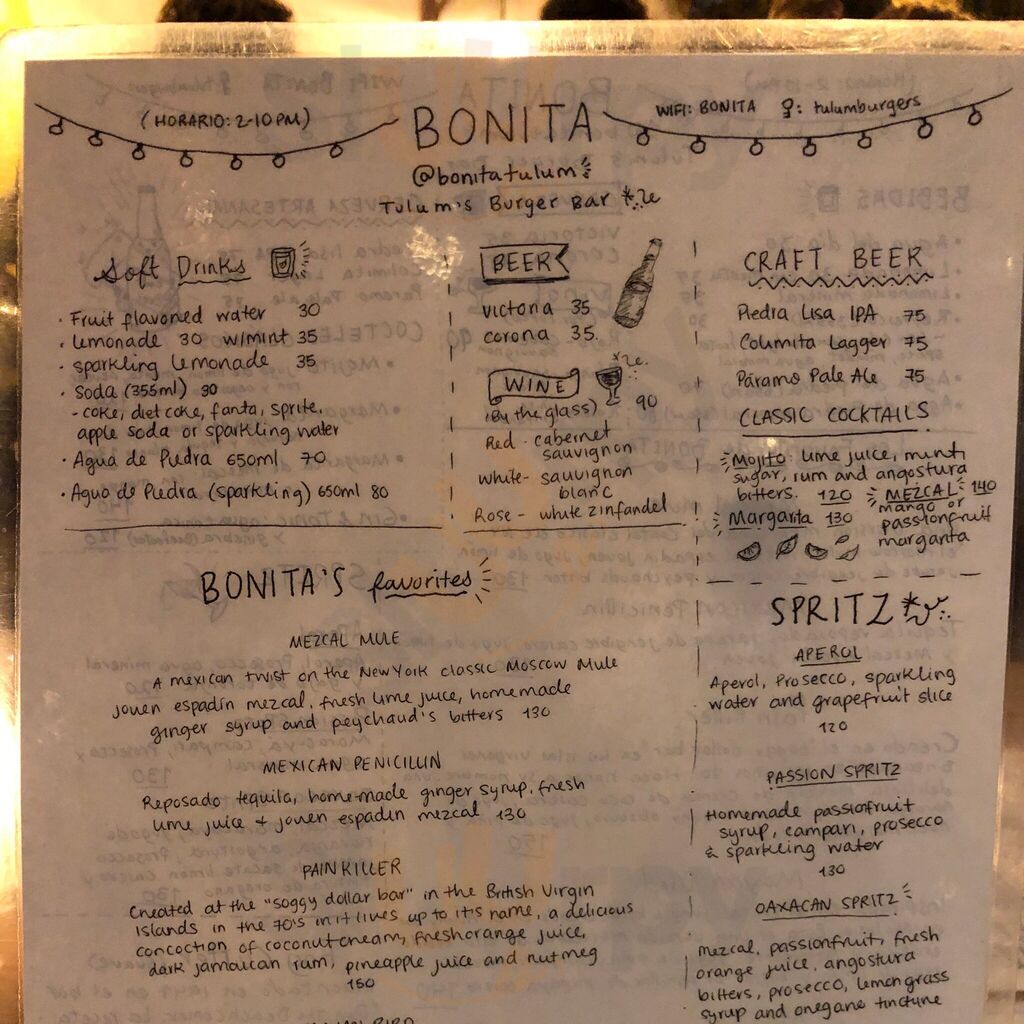 (HORARIO: 2-10PM)
BONITA
WIFI: BONITA : tulumburgers
@bonitatulum
Tulum's Burger Bar
Soft Drinks
· Fruit flavored water 30
· Lemonade 30 w/mint 35
· sparkling lemonade 35
· Soda (355ml) 30
- coke, diet coke, fanta, sprite,
apple soda or sparkling water
· Agua de Piedra 650ml 70
· Agua de Piedra (sparkling) 650ml 80
BEER
victoria 35
corona 35.
WINE
(By the glass) 90
Red - cabernet
sauvignon
white - sauvignon
blanc
Rose - white zinfandel
CRAFT BEER
Piedra Lisa IPA 75
Colimita Lagger 75
Páramo Pale Ale 75
CLASSIC COCKTAILS
Mojito: lime juice, mint,
sugar, rum and angostura
bitters. 120
Margarita 130
MEZCAL 140
mango or
passionfruit
margarita
BONITA'S favorites
MEZCAL MULE
A mexican twist on the New York classic Moscow Mule
jouen espadín mezcal, fresh lime juice, homemade
ginger syrup and peychaud's bitters 130
MEXICAN PENICILLIN
Reposado tequila, home-made ginger syrup, fresh
lime juice + jouen espadin mezcal 130
PAINKILLER
Created at the "soggy dollar bar" in the British Virgin
Islands in the 70's in it lives up to it's name, a delicious
concoction of coconut cream, fresh orange juice,
dark jamaican rum, pineapple juice and nutmeg
150
SPRITZ
APEROL
Aperol, Prosecco, sparkling
water and grapefruit slice
120
PASSION SPRITZ
Homemade passionfruit
syrup, campari, prosecco
& sparkling water
130
OAXACAN SPRITZ
Mezcal, passionfruit, fresh
orange juice, angostura
bitters, prosecco, lemongrass
syrup and oregano tincture